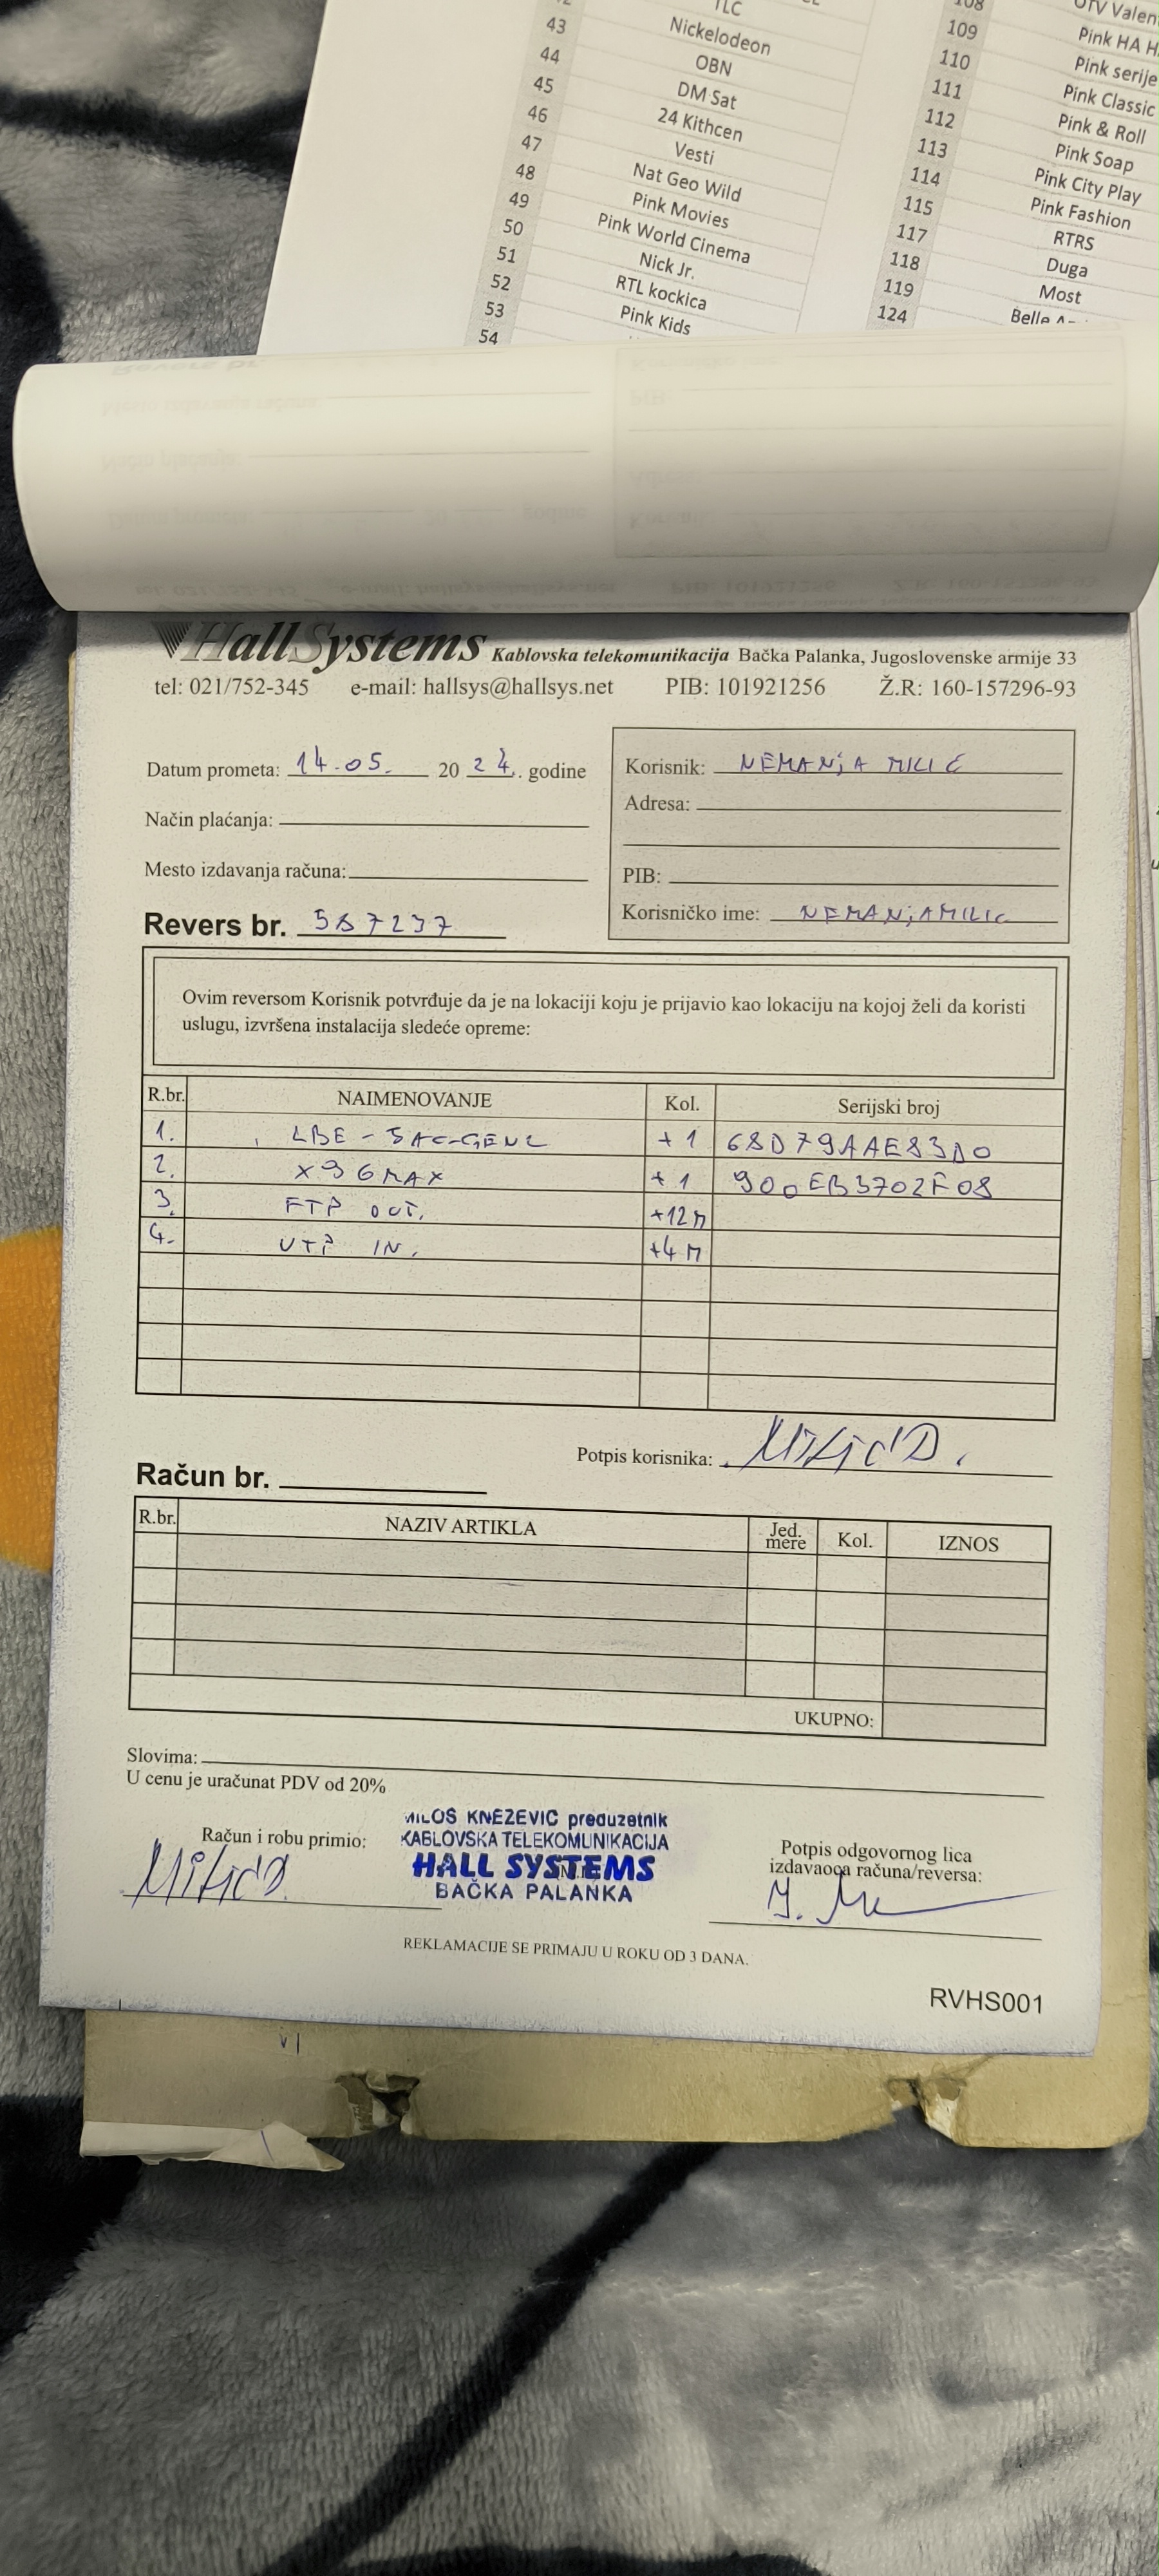 TLC
43 Nickelodeon
44 OBN
45 DM Sat
46 24 Kithcen
47 Vesti
48 Nat Geo Wild
49 Pink Movies
50 Pink World Cinema
51 Nick Jr.
52 RTL kockica
53 Pink Kids
54
108
109 Pink HA H
110 Pink serije
111 Pink Classic
112 Pink & Roll
113 Pink Soap
114 Pink City Play
115 Pink Fashion
117 RTRS
118 Duga
119 Most
124 Belle
HallSystems Kablovska telekomunikacija Bačka Palanka, Jugoslovenske armije 33
tel: 021/752-345 e-mail: hallsys@hallsys.net PIB: 101921256 Ž.R: 160-157296-93
Datum prometa: 14.05. 20 24. godine
Način plaćanja:
Mesto izdavanja računa:
Revers br. 587237
Korisnik: NEMANjA MILIĆ
Adresa:
PIB:
Korisničko ime: NEMANjAMILIC
Ovim reversom Korisnik potvrđuje da je na lokaciji koju je prijavio kao lokaciju na kojoj želi da koristi
uslugu, izvršena instalacija sledeće opreme:
R.br. NAIMENOVANJE Kol. Serijski broj
1. LBE-5AC-GEN2 +1 68D79AAE83D0
2. X96MAX +1 900EB3702F08
3. FTP OUT. +12M
4. UTP IN. +4M
Potpis korisnika: Milić D.
Račun br.
R.br. NAZIV ARTIKLA Jed. mere Kol. IZNOS
UKUPNO:
Slovima:
U cenu je uračunat PDV od 20%
Račun i robu primio:
Milić D.
MILOŠ KNEŽEVIĆ preduzetnik
KABLOVSKA TELEKOMUNIKACIJA
HALL SYSTEMS
BAČKA PALANKA
Potpis odgovornog lica
izdavaoca računa/reversa:
REKLAMACIJE SE PRIMAJU U ROKU OD 3 DANA.
RVHS001